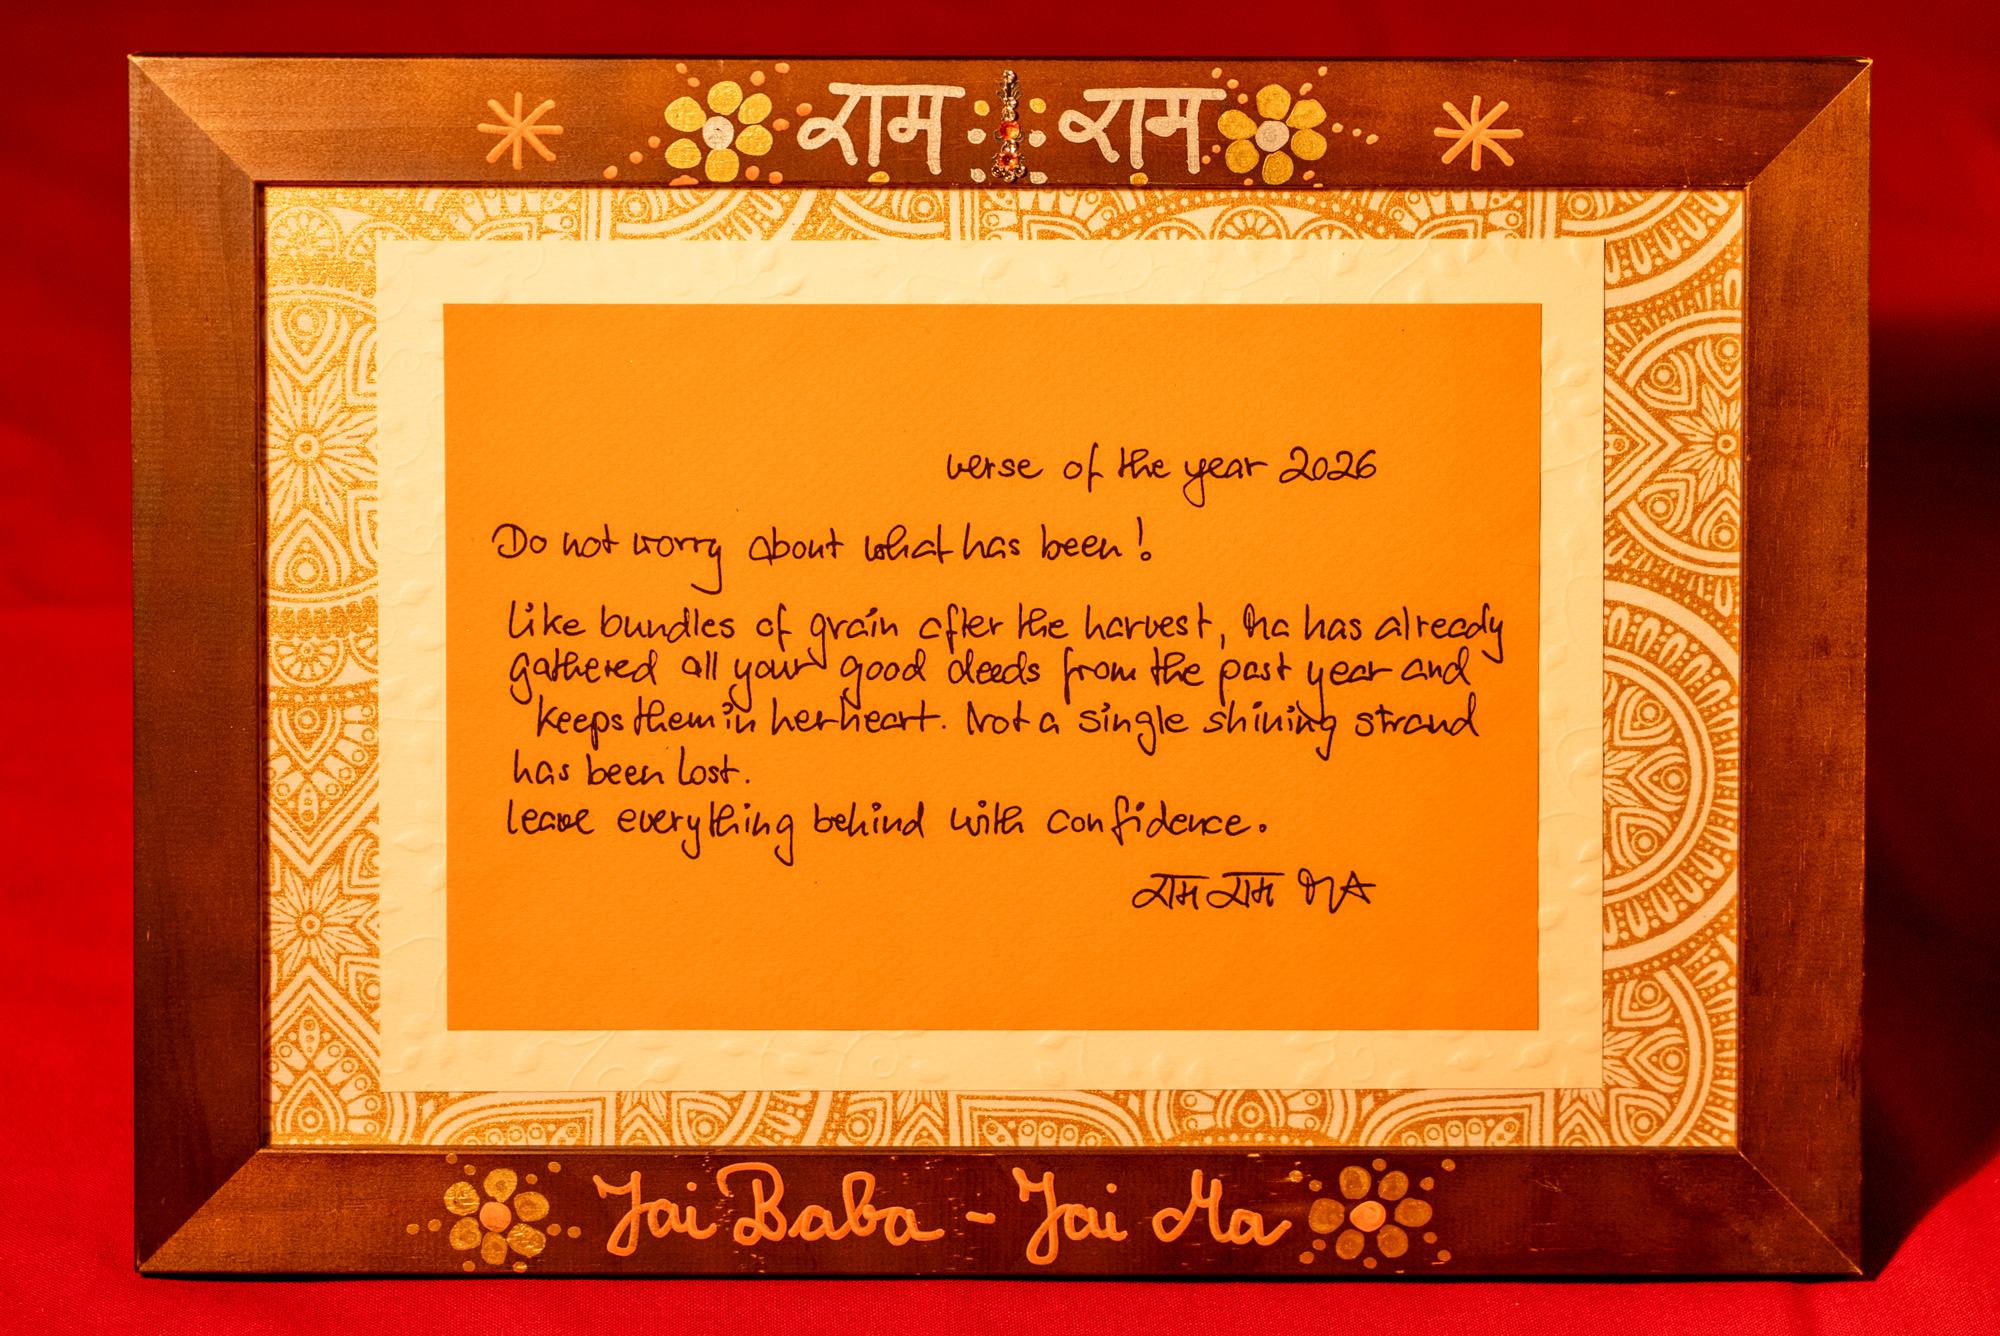 राम राम
verse of the year 2026
Do not worry about what has been!
Like bundles of grain after the harvest, Ma has already
gathered all your good deeds from the past year and
keeps them in her heart. Not a single shining strand
has been lost.
Leave everything behind with confidence.
राम राम MA
Jai Baba - Jai Ma